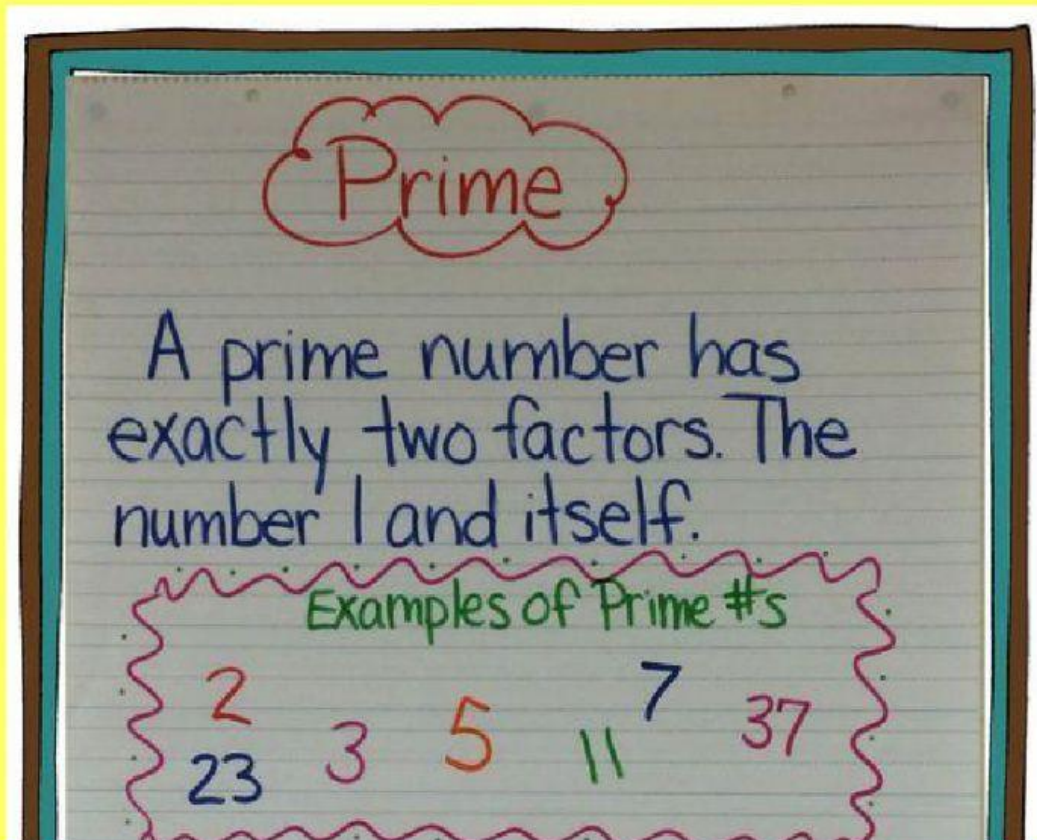 Prime
A prime number has
exactly two factors. The
number 1 and itself.
Examples of Prime #s
2 7 37
23 3 5 11